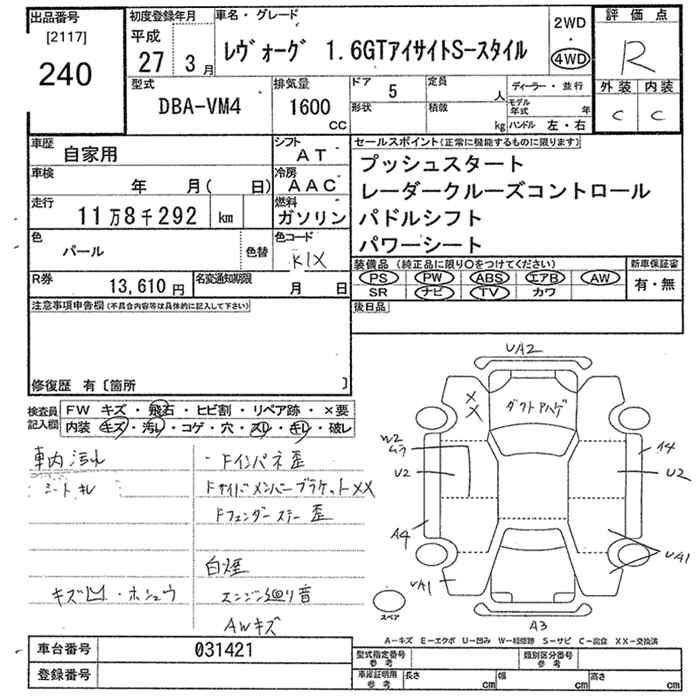 出品番号
[2117]
240
初度登録年月
平成
27 3月
車名・グレード
レヴォーグ 1.6GTアイサイトS-スタイル
2WD
・
4WD
評価点
R
外装 内装
C C
型式
DBA-VM4
排気量
1600
CC
ドア 5
定員 人
形状
積載 kg
ディーラー・並行
モデル年式 年
ハンドル 左・右
車歴
自家用
シフト
AT
車検
年 月( 日)
冷房
AAC
走行
11万8千292 km
燃料
ガソリン
色
パール
色替
色コード
K1X
R券
13,610円
名変通知期限
月 日
セールスポイント(正常に機能するものに限ります)
プッシュスタート
レーダークルーズコントロール
パドルシフト
パワーシート
装備品(純正品に限り〇をつけてください)
PS PW ABS エアB AW
SR ナビ TV カワ
新車保証書
有・無
後日品
注意事項申告欄(不具合内容等は具体的に記入して下さい)
修復歴 有〔箇所 〕
検査員記入欄
FW キズ・飛石・ヒビ割・リペア跡・×要
内装・キズ・汚レ・コゲ・穴・スレ・キレ・破レ
車内汚れ
シートキレ
キズ凹・ホシュウ
ドインパネ歪
ドサイドメンバーブラケットXX
ドフェンダーステー歪
白煙
エンジン廻り音
AWキズ
UA2
××
ダクトアハゲ
W2
ムラ
U2
A4
UA1
A4
U2
UA1
A3
スペア
A−キズ E−エクボ U−凹み W−補修跡 S−サビ C−腐食 XX−交換済
車台番号 031421
登録番号
型式指定番号
参考
類別区分番号
参考
車庫証明用
参考
長さ cm
幅 cm
高さ cm